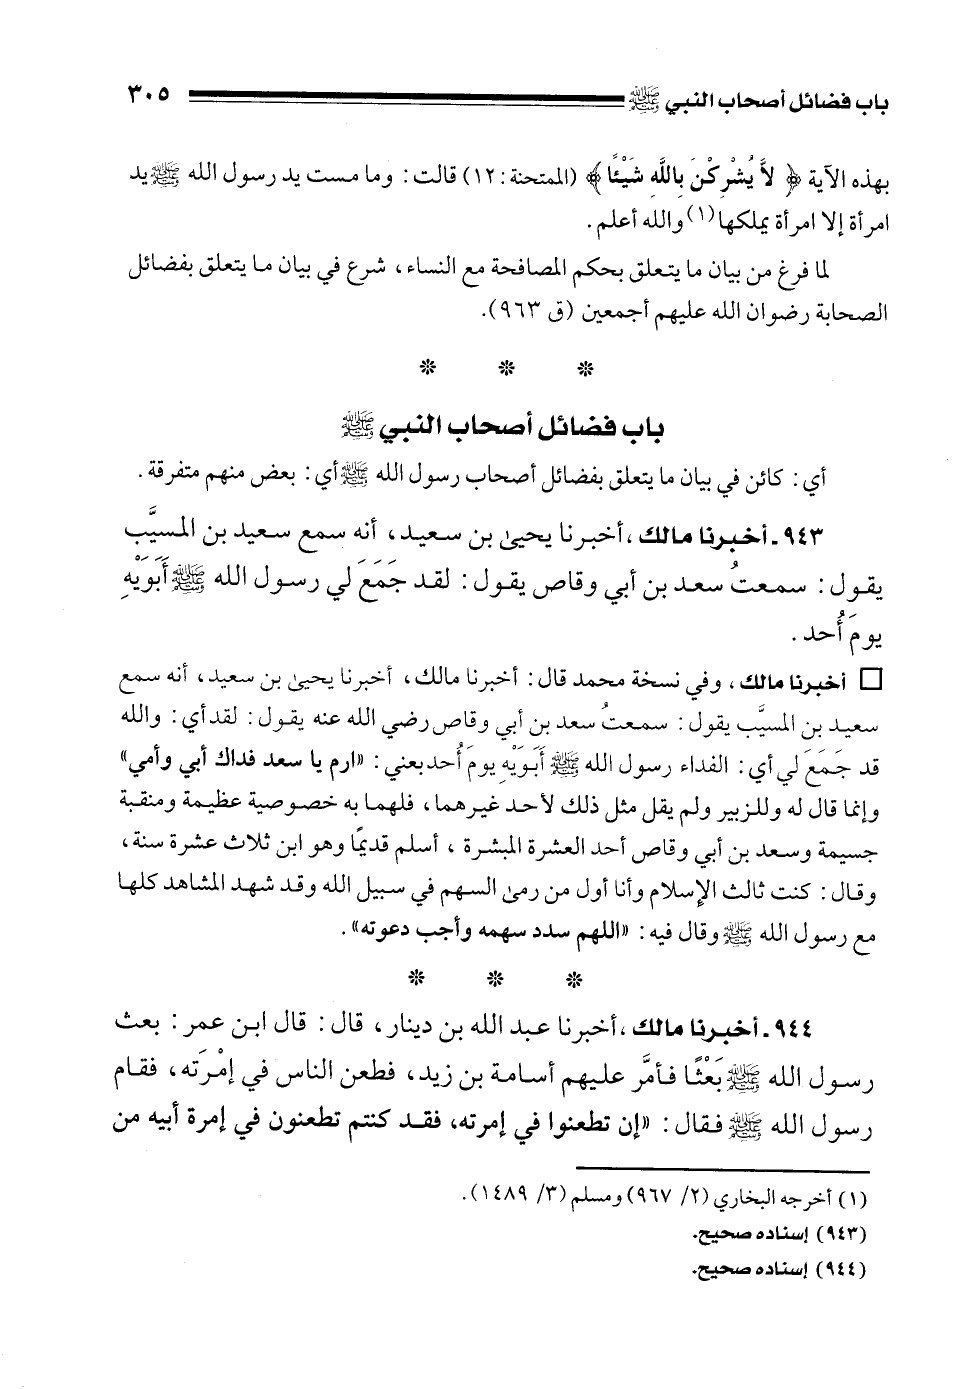 باب فضائل أصحاب النبي ﷺ ٣٠٥
بهذه الآية ﴿ لاَّ يُشْرِكْنَ بِاللَّهِ شَيْئًا ﴾ (الممتحنة: ١٢) قالت: وما مست يد رسول الله ﷺ يد
امرأة إلا امرأة يملكها(١) والله أعلم.
لما فرغ من بيان ما يتعلق بحكم المصافحة مع النساء، شرع في بيان ما يتعلق بفضائل
الصحابة رضوان الله عليهم أجمعين (ق ٩٦٣).
* * *
باب فضائل أصحاب النبي ﷺ
أي: كائن في بيان ما يتعلق بفضائل أصحاب رسول الله ﷺ أي: بعض منهم متفرقة.
٩٤٣ـ أخبرنا مالك، أخبرنا يحيىٰ بن سعيد، أنه سمع سعيد بن المسيَّب
يقول: سمعتُ سعد بن أبي وقاص يقول: لقد جَمَعَ لي رسول الله ﷺ أَبَوَيْهِ
يومَ أُحد.
□ أخبرنا مالك، وفي نسخة محمد قال: أخبرنا مالك، أخبرنا يحيىٰ بن سعيد، أنه سمع
سعيد بن المسيَّب يقول: سمعتُ سعد بن أبي وقاص رضي الله عنه يقول: لقد أي: والله
قد جَمَعَ لي أي: الفداء رسول الله ﷺ أَبَوَيْهِ يومَ أُحد يعني: «ارم يا سعد فداك أبي وأمي»
وإنما قال له وللزبير ولم يقل مثل ذلك لأحد غيرهما، فلهما به خصوصية عظيمة ومنقبة
جسيمة وسعد بن أبي وقاص أحد العشرة المبشرة ، أسلم قديمًا وهو ابن ثلاث عشرة سنة،
وقال: كنت ثالث الإسلام وأنا أول من رمىٰ السهم في سبيل الله وقد شهد المشاهد كلها
مع رسول الله ﷺ وقال فيه: «اللهم سدد سهمه وأجب دعوته».
* * *
٩٤٤ـ أخبرنا مالك، أخبرنا عبد الله بن دينار، قال: قال ابن عمر: بعث
رسول الله ﷺ بَعْثًا فأمَّر عليهم أسامة بن زيد، فطعن الناس في إمْرَته، فقام
رسول الله ﷺ فقال: «إن تطعنوا في إمرته، فقد كنتم تطعنون في إمرة أبيه من
(١) أخرجه البخاري (٢/ ٩٦٧) ومسلم (٣/ ١٤٨٩).
(٩٤٣) إسناده صحيح.
(٩٤٤) إسناده صحيح.